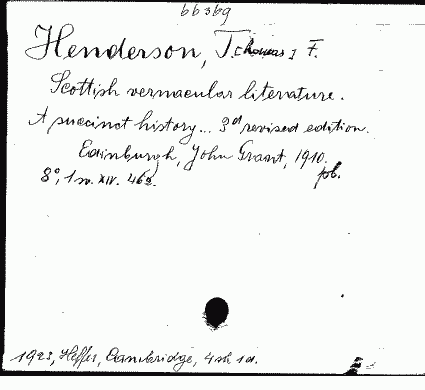 bb3b9
Henderson, T[homas] F.
Scottish vernacular literature.
A succinct history... 3d revised edition.
Edinburgh, John Grant, 1910.
8°, 1 v. XIV. 462. pb.
1923, Heffer, Cambridge, 4 sh 1 d.